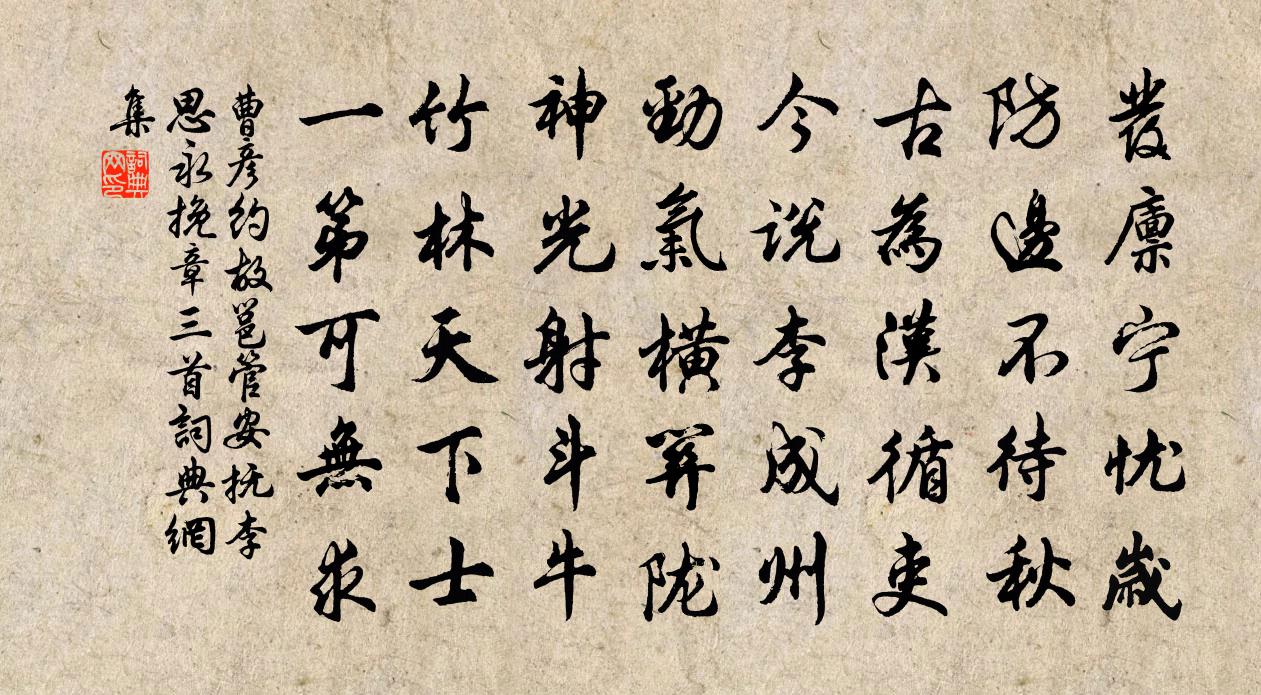 發廪宁忧歲
防邊不待秋
古為漢循吏
今说李成州
勁氣横羿陇
神光射斗牛
竹林天下士
一第可無求
曹彦约故邕管安抚李
思永挽章三首詞典網
集
詞典網印